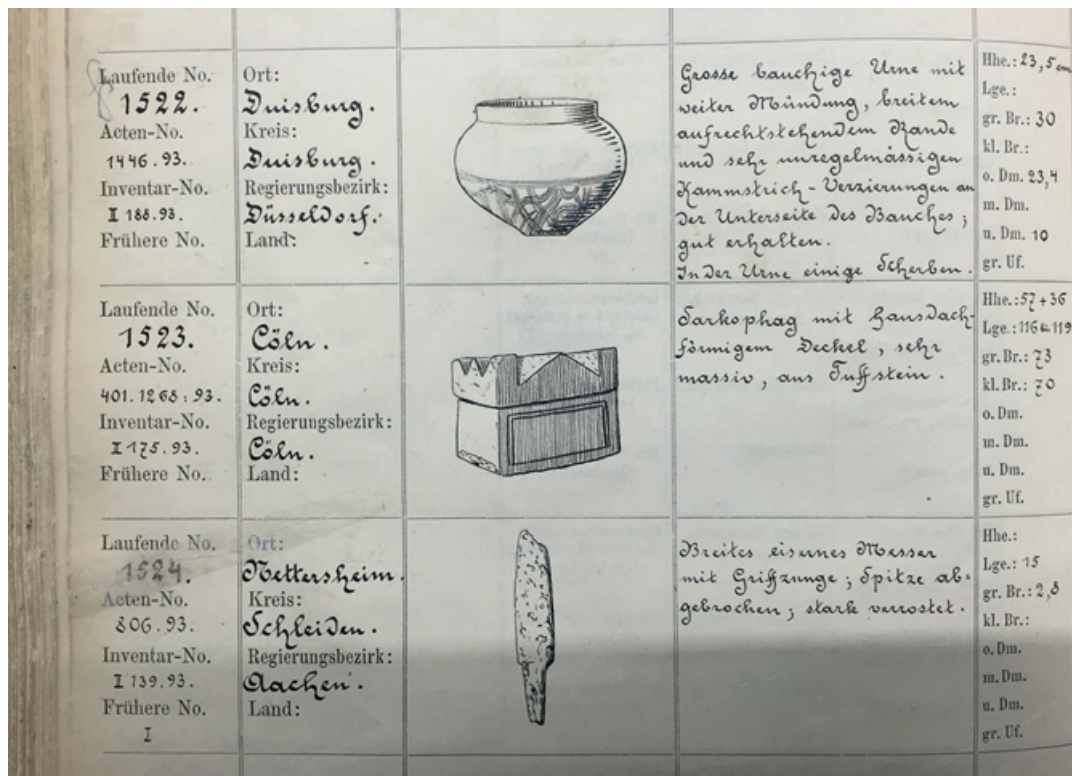 Laufende No.
1522.
Acten-No.
1446.93.
Inventar-No.
I 188.93.
Frühere No.
Ort:
Duisburg.
Kreis:
Duisburg.
Regierungsbezirk:
Düsseldorf.
Land:
Grosse bauchige Urne mit
weiter Mündung, breitem
aufrechtstehendem Rande
und sehr unregelmässigen
Kammstrich-Verzierungen an
der Unterseite des Bauches;
gut erhalten.
In der Urne einige Scherben.
Hhe.: 23,5 cm
Lge.:
gr. Br.: 30
kl. Br.:
o. Dm. 23,4
m. Dm.
u. Dm. 10
gr. Uf.
Laufende No.
1523.
Acten-No.
401.1268:93.
Inventar-No.
I 175.93.
Frühere No.
Ort:
Cöln.
Kreis:
Cöln.
Regierungsbezirk:
Cöln.
Land:
Sarkophag mit hausdach-
förmigem Deckel, sehr
massiv, aus Tuffstein.
Hhe.: 57 + 36
Lge.: 116 u. 119
gr. Br.: 73
kl. Br.: 70
o. Dm.
m. Dm.
u. Dm.
gr. Uf.
Laufende No.
1524.
Acten-No.
806.93.
Inventar-No.
I 139.93.
Frühere No.
I
Ort:
Nettersheim.
Kreis:
Schleiden.
Regierungsbezirk:
Aachen.
Land:
Breites eisernes Messer
mit Griffzunge; Spitze ab-
gebrochen; stark verrostet.
Hhe.:
Lge.: 15
gr. Br.: 2,8
kl. Br.:
o. Dm.
m. Dm.
u. Dm.
gr. Uf.